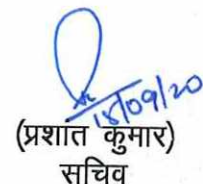 18/09/20
(प्रशांत कुमार)
सचिव